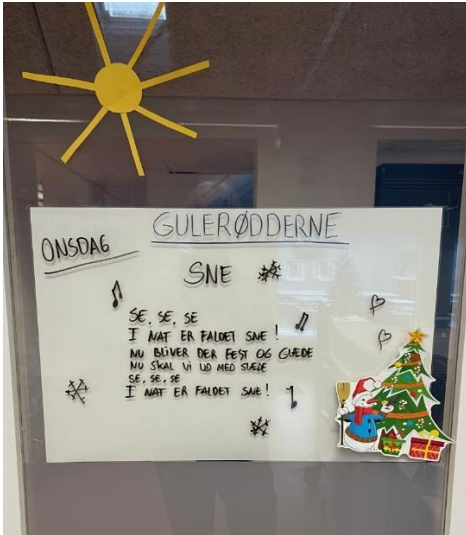 GULERØDDERNE
ONSDAG
SNE
SE, SE, SE
I NAT ER FALDET SNE!
NU BLIVER DER FEST OG GLÆDE
NU SKAL VI UD MED SLÆDE
SE, SE, SE
I NAT ER FALDET SNE!